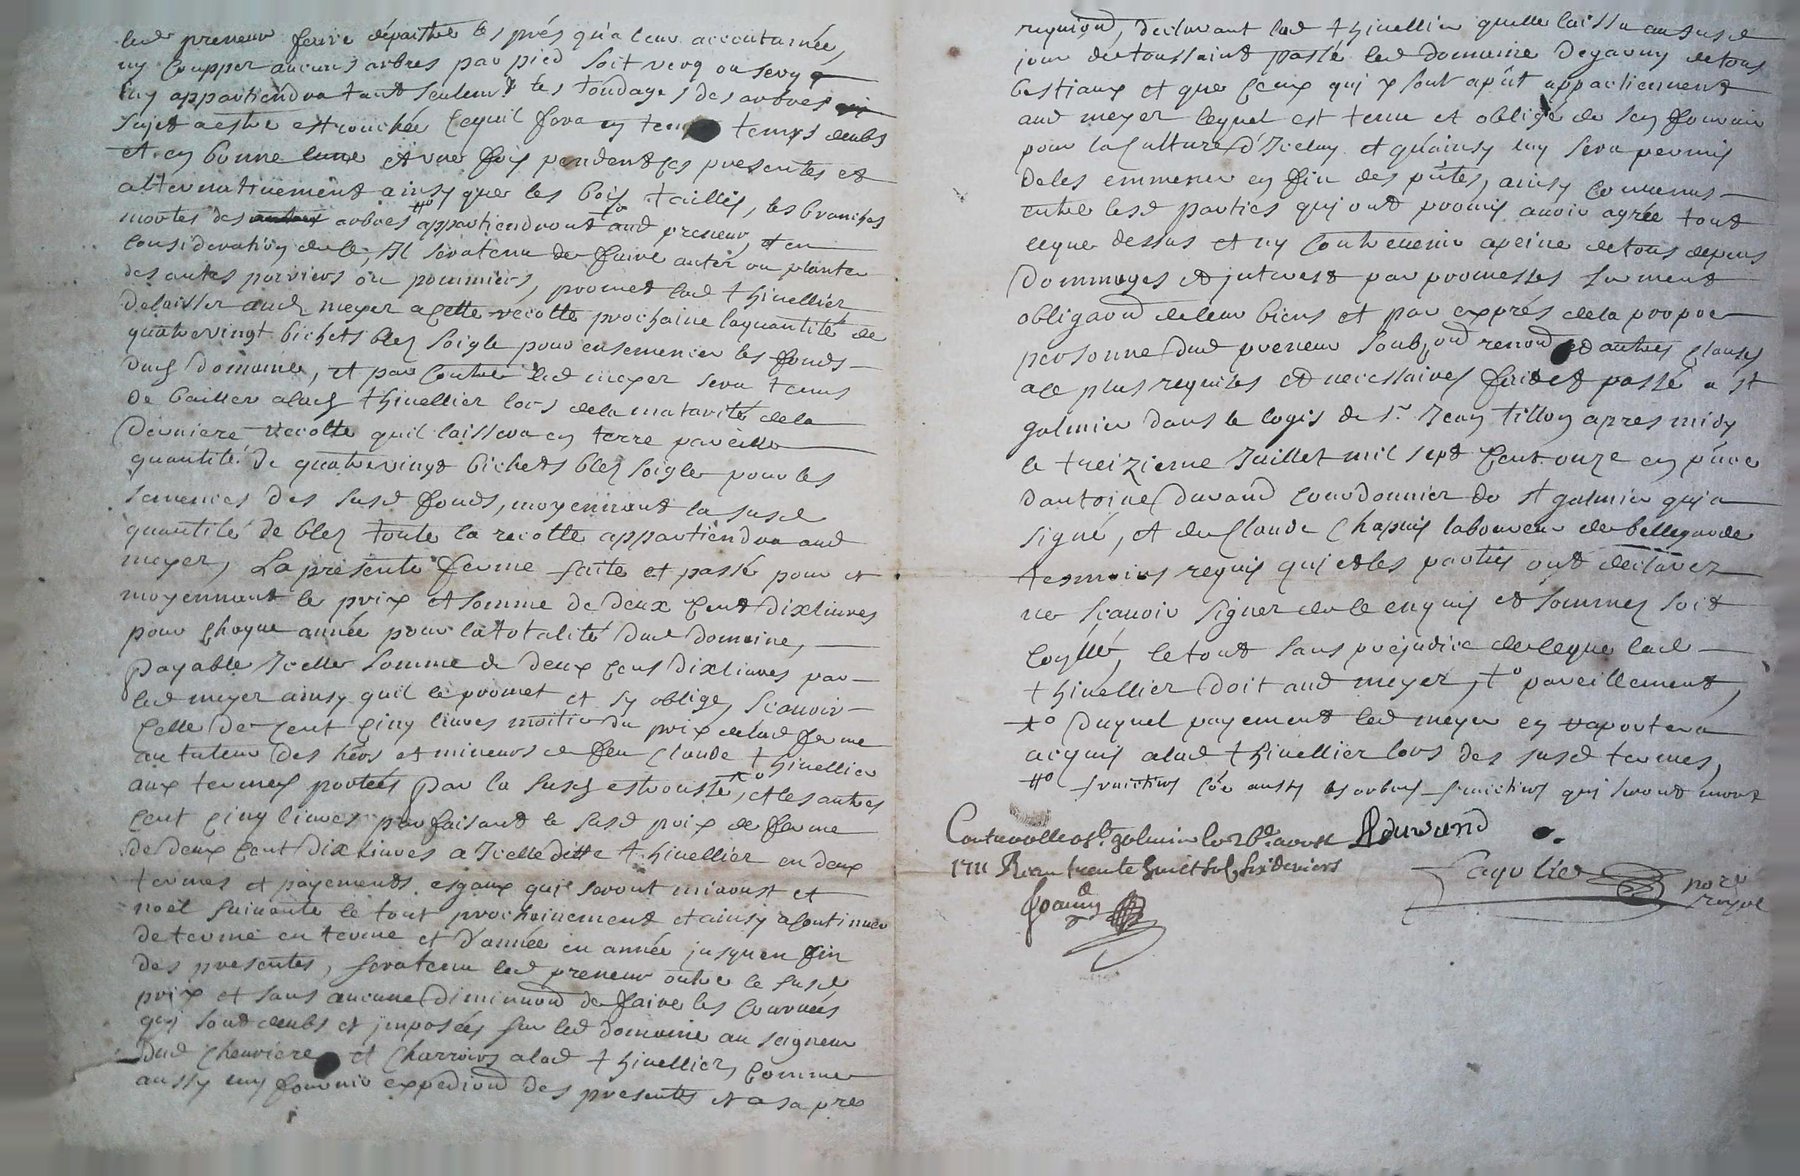 led preneur faire dépaistre les prés qu'a leur accoutumée,
ny coupper aucuns arbres par pied soit verq ou secq
luy appartiendra tant seulemt les tondages des arbres
sujet a estre estronchée lequil fera en temps deubs
et en bonne lune et une fois pendent ces presentes et
alternativement ainsy que les bois taillis, les branches
mortes des arbres #o appartiendront aud preneur, et en
consideration de ce, Il sera tenu de faire anter ou planter
des antes poiriers ou pommiers, promet lad thivellier
delaisser aud meyer a cette recolte prochaine la quantité de
quatrevingt bichets bley soigle pour ensemencer les fonds
dud domaine, et par contre led meyer sera tenus
de bailler a lad thivellier lors de la maturité de la
derniere recolte quil laissera en terre pareille
quantité de quatrevingt bichets bley soigle pour les
semences des susd fonds, moyennant la susd
quantité de bley toute la recolte appartiendra aud
meyer, La presente ferme faite et passé pour et
moyennant le prix et somme de deux cent dix livres
pour chaque année pour la totalité dud domaine,
payable Icelle somme de deux cens dix livres par
led meyer ainsy quil le promet et sy oblige, sçavoir
celle de cent cinq livres moitie du prix de lad ferme
au tuteur des héoirs et mineurs de feu Claude thivellier
aux termes portées par la susd estrousse +o, et les autres
cent cinq livres parfaisant le susd prix de ferme
de deux cent dix livres a Icelle ditte thivellier en deux
termes et payements esgaux qui seront miaoust et
noel suivants le tout prochainement et ainsy a continuer
de terme en terme et d'année en année jusqu'en fin
des presentes, sera tenu led preneur outre le susd
prix et sans aucune diminuon de faire les courvées
qui sont deubs et jmposées sur led domaine au seigneur
dud Cheuriere et charrois a lad thivellier, comme
aussy luy fournir expedion des presentes et a sa pre
requion, declarant lad thivellier quelle laissa au susd
jour de toussaint passé led domaine degarny de tous
bestiaux et que ceux qui y sont apnt appartiennent
aud meyer lequel est tenu et obligé de s'en fournir
pour la culture d'Iceluy et qu'ainsy luy sera permis
de les emmener en fin des pntes, ainsy convenus
entre lesd parties qui ont promis avoir agrée tout
ceque dessus et ny contrevenir a peine de tous depens
dommages et jnterest par promesses serment
obligaon de leur biens et par exprés de la propre
personne dud preneur soubon renon et autres clauses
a ce plus requises et necessaires fait et passé a st
galmier dans le logis de sr Jean tillon apres midy
le treizieme Juillet mil sept cent onze en pnce
d'antoine durand courdonnier de st galmier qui a
signé, et de Claude Chapuis laboureur de bellegarde
tesmoins requis qui et les parties ont declarez
ne sçavoir signer de ce enquis et sommez soit
le tout sans prejudice de ceque lad
thivellier doit aud meyer, +o pareillement,
+o duquel payement led meyer en raportera
acquis a lad thivellier lors des susd termes,
#o fruictiers arbres fruictiers qui seront mort
Contrerolle a st galmier le 26e aoust
Adurand
1711 Reçu trente huict sols six deniers
notre
royal